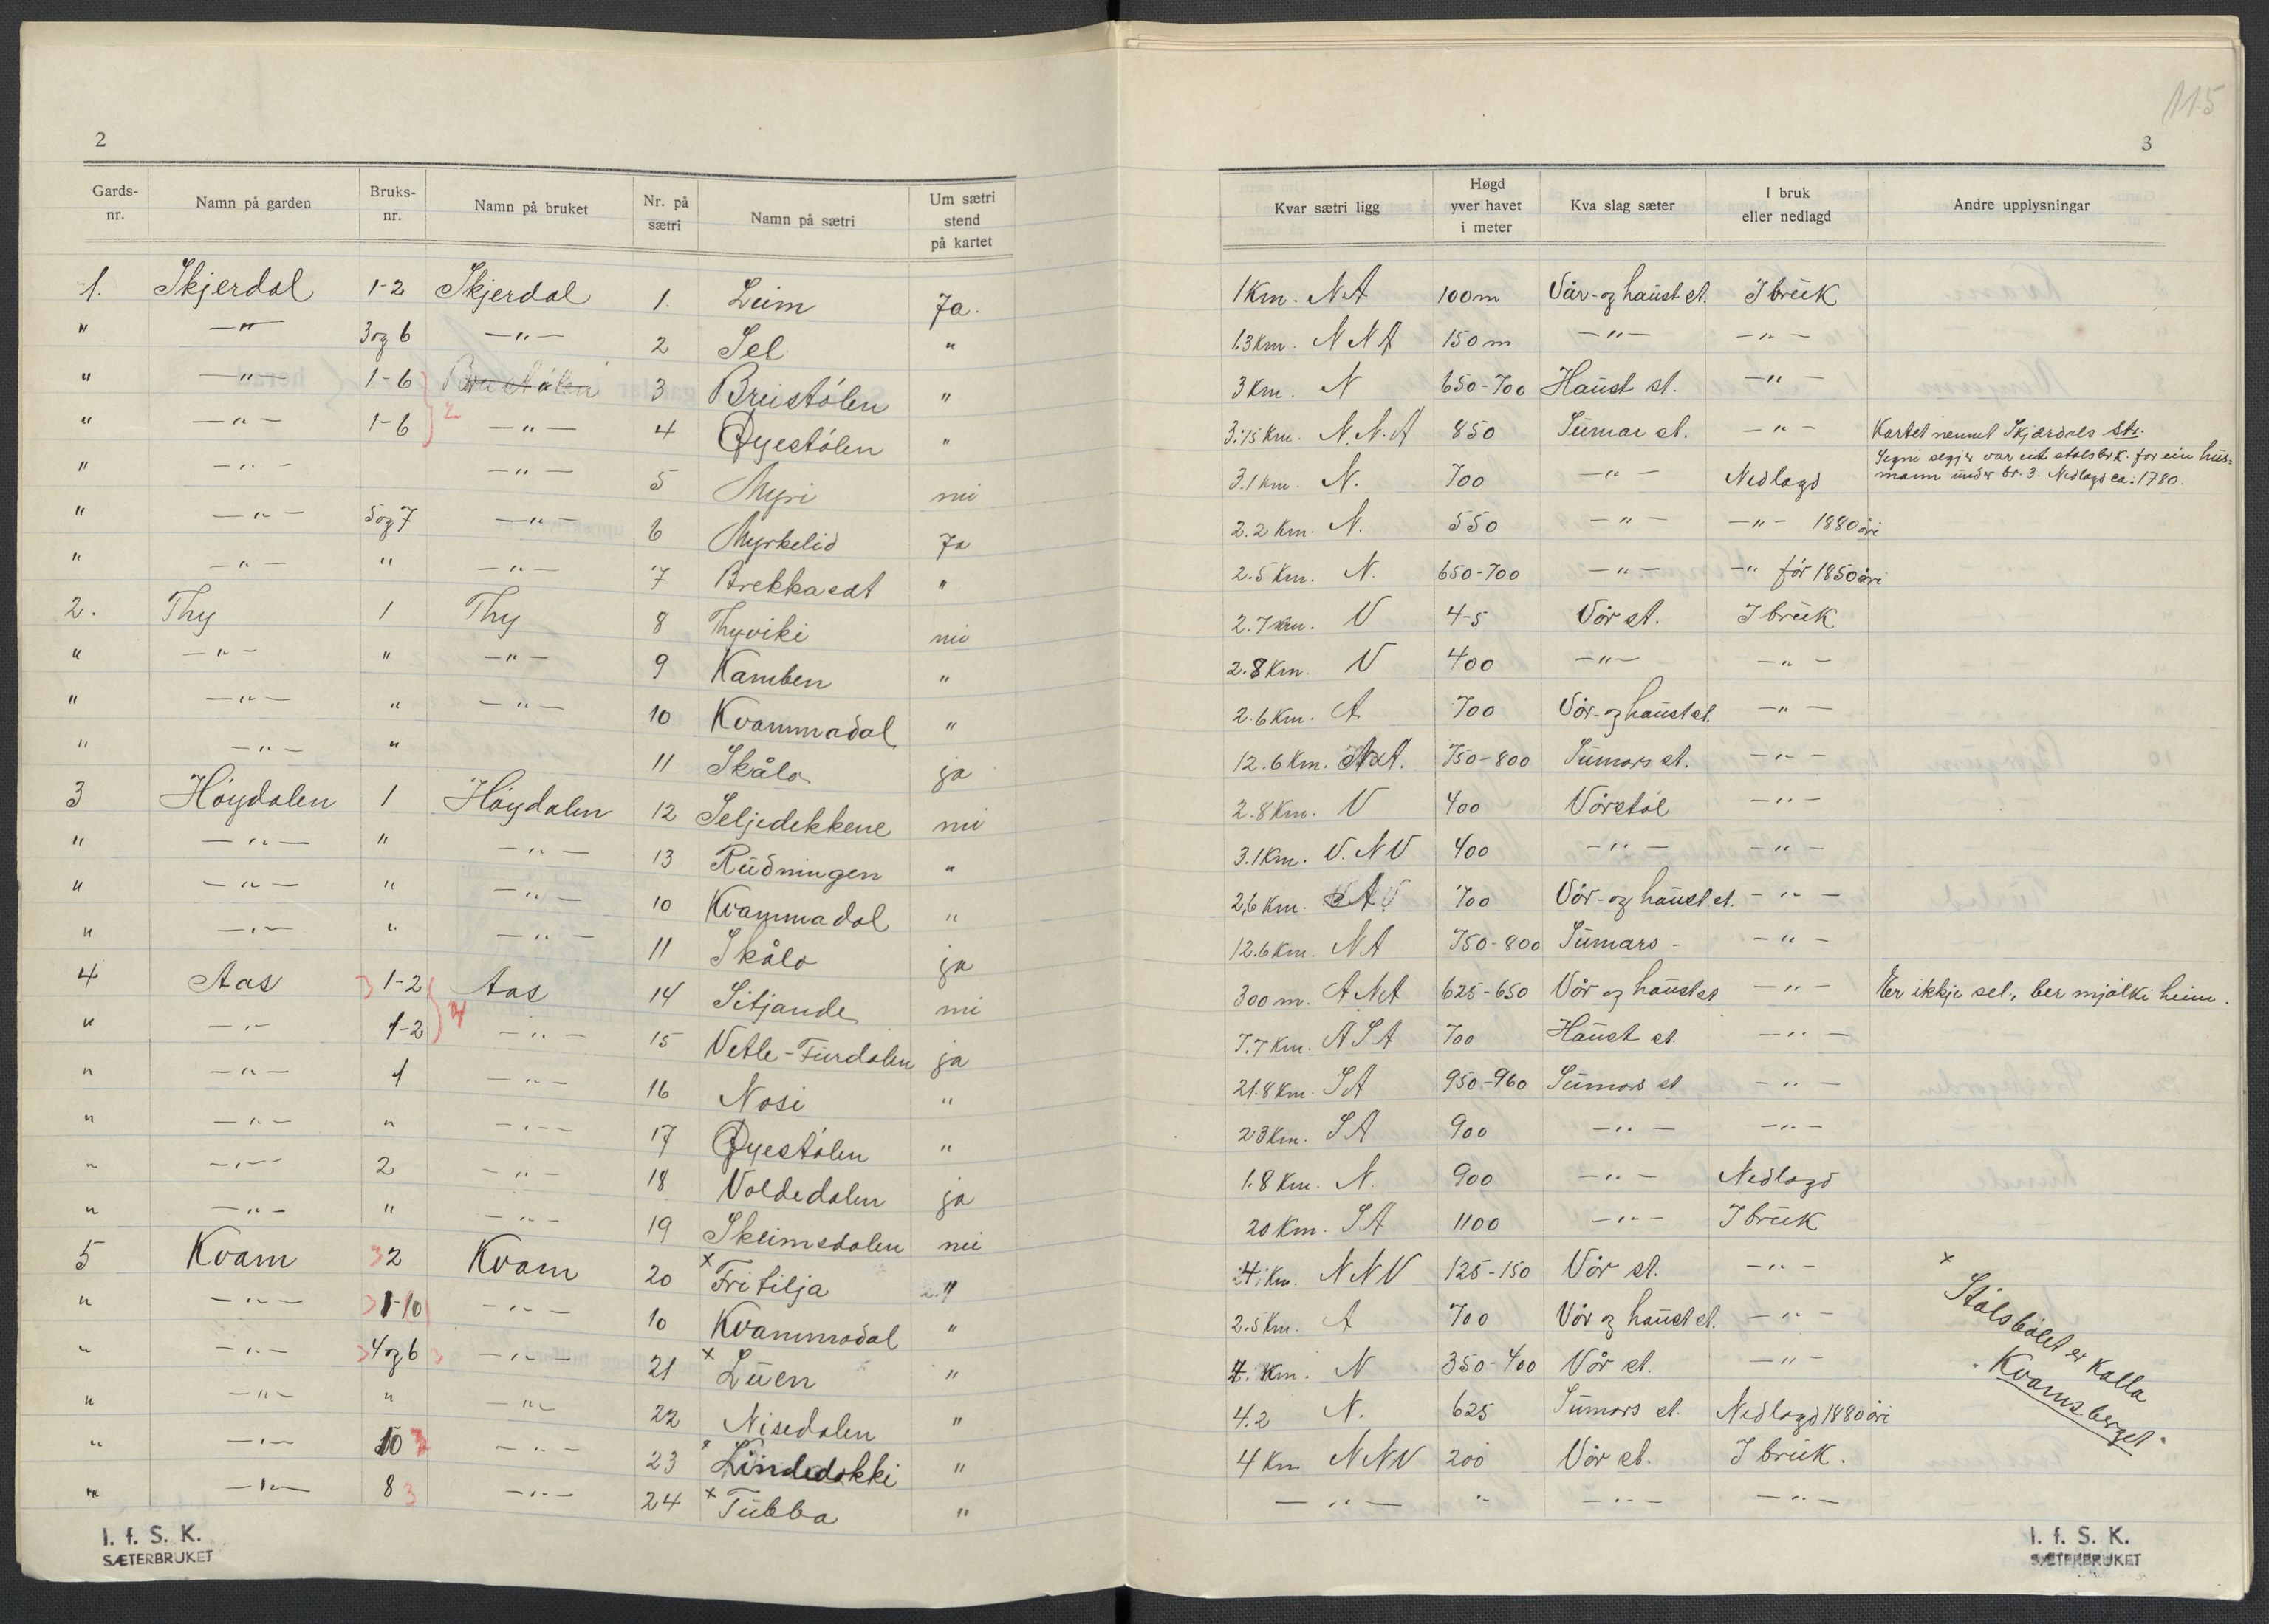 115
2
3
Gards-nr. | Namn på garden | Bruks-nr. | Namn på bruket | Nr. på sætri | Namn på sætri | Um sætri stend på kartet | Kvar sætri ligg | Høgd yver havet i meter | Kva slag sæter | I bruk eller nedlagd | Andre upplysningar
1. | Skjerdal | 1-2 | Skjerdal | 1. | Leim | Ja. | 1 Km. N A | 100 m | Vår- og haust st. | I bruk
" | —"— | 3 og 6 | —"— | 2 | Sel | " | 1.3 Km. N N A | 150 m | —"— | —"—
" | —"— | 1-6 | | 3 | Breistólen | " | 3 Km. N | 650-700 | Haust st. | —"—
" | —"— | 1-6 | —"— | 4 | Øyestólen | " | 3.75 Km. N. N. A | 850 | Sumar st. | —"— | Kartet nemnt Skjerdals str.
" | —"— | | —"— | 5 | Myri | nei | 3.1 km. N. | 700 | —"— | Nedlagd | Segni segjer var eit stølsbrk. for ein hus=mann under br. 3. Nedlagd ca: 1780.
" | —"— | 5 og 7 | —"— | 6 | Myrkelid | Ja | 2.2 Km. N. | 550 | —"— | —"— 1880 åri
" | —"— | " | —"— | 7 | Brekkasæt | " | 2.5 Km. N. | 650-700 | —"— | —" før 1850 åri
2. | Thy | 1 | Thy | 8 | Thyviki | nei | 2.7 km. V | 4-5 | Vår st. | I bruk
" | —"— | " | —"— | 9 | Kamben | " | 2.8 Km. V | 400 | —"— | —"—
" | —"— | " | —"— | 10 | Kvammadal | " | 2.6 Km. A | 700 | Vår- og haust st. | —"—
" | —"— | " | | 11 | Skålo | ja | 12.6 Km. N A. | 750-800 | Sumars st. | —"—
3 | Høydalen | 1 | Høydalen | 12 | Seljedekkene | nei | 2.8 Km. V | 400 | Vårstøl | —"—
" | —"— | " | —"— | 13 | Rudningen | " | 3.1 Km. V. N V | 400 | —"— | —"—
" | —"— | " | —"— | 10 | Kvammadal | " | 2,6 Km. A | 700 | Vår- og haust st. | —"—
" | —"— | " | —"— | 11 | Skålo | ja | 12.6 Km. N A | 750-800 | Sumars - | —"—
4 | Aas | 1-2 | Aas | 14 | Sitjande | nei | 300 m. A N A | 625-650 | Vår og haust st | —"— | Er ikkje sel, ber mjølki heim.
" | —"— | 1-2 | —"— | 15 | Vetle-Furdalen | ja | 7.7 Km. A S A | 700 | Haust st. | —"—
" | —"— | 1 | —"— | 16 | Nosi | " | 21.8 Km. S A | 950-960 | Sumars st | —"—
" | —"— | " | —"— | 17 | Øyestølen | " | 23 Km. S A | 900 | —"— | —"—
" | —"— | 2 | —"— | 18 | Voldedalen | ja | 1.8 Km. N. | 900 | —"— | Nedlagd
" | —"— | " | —"— | 19 | Skeimsdalen | nei | 20 Km. S A | 1100 | —"— | I bruk
5 | Kvam | 2 | Kvam | 20 | x Fritilja | " | 4 Km. N N V | 125-150 | Vår st. | —"— | x Stølsbølet er kalla "Kvamsberget"
" | —"— | 1-10 | —"— | 10 | Kvammadal | " | 2.5 Km. A | 700 | Vår og haust st. | —"—
" | —"— | 4 og 6 | —"— | 21 | x Luen | " | 4. Km. N | 350-400 | Vår st. | —"—
" | —"— | " | —"— | 22 | Nisedalen | " | 4.2 N. | 625 | Sumars st. | Nedlagd 1880 åri
" | —"— | 10 | —"— | 23 | x Lindedokki | " | 4 Km N N V | 200 | Vår st. | I bruk.
" | —"— | 8 | —"— | 24 | x Tubba | " | —"— | " | —"— | —"—
I. f. S. K.
SÆTERBRUKET
I. f. S. K.
SÆTERBRUKET